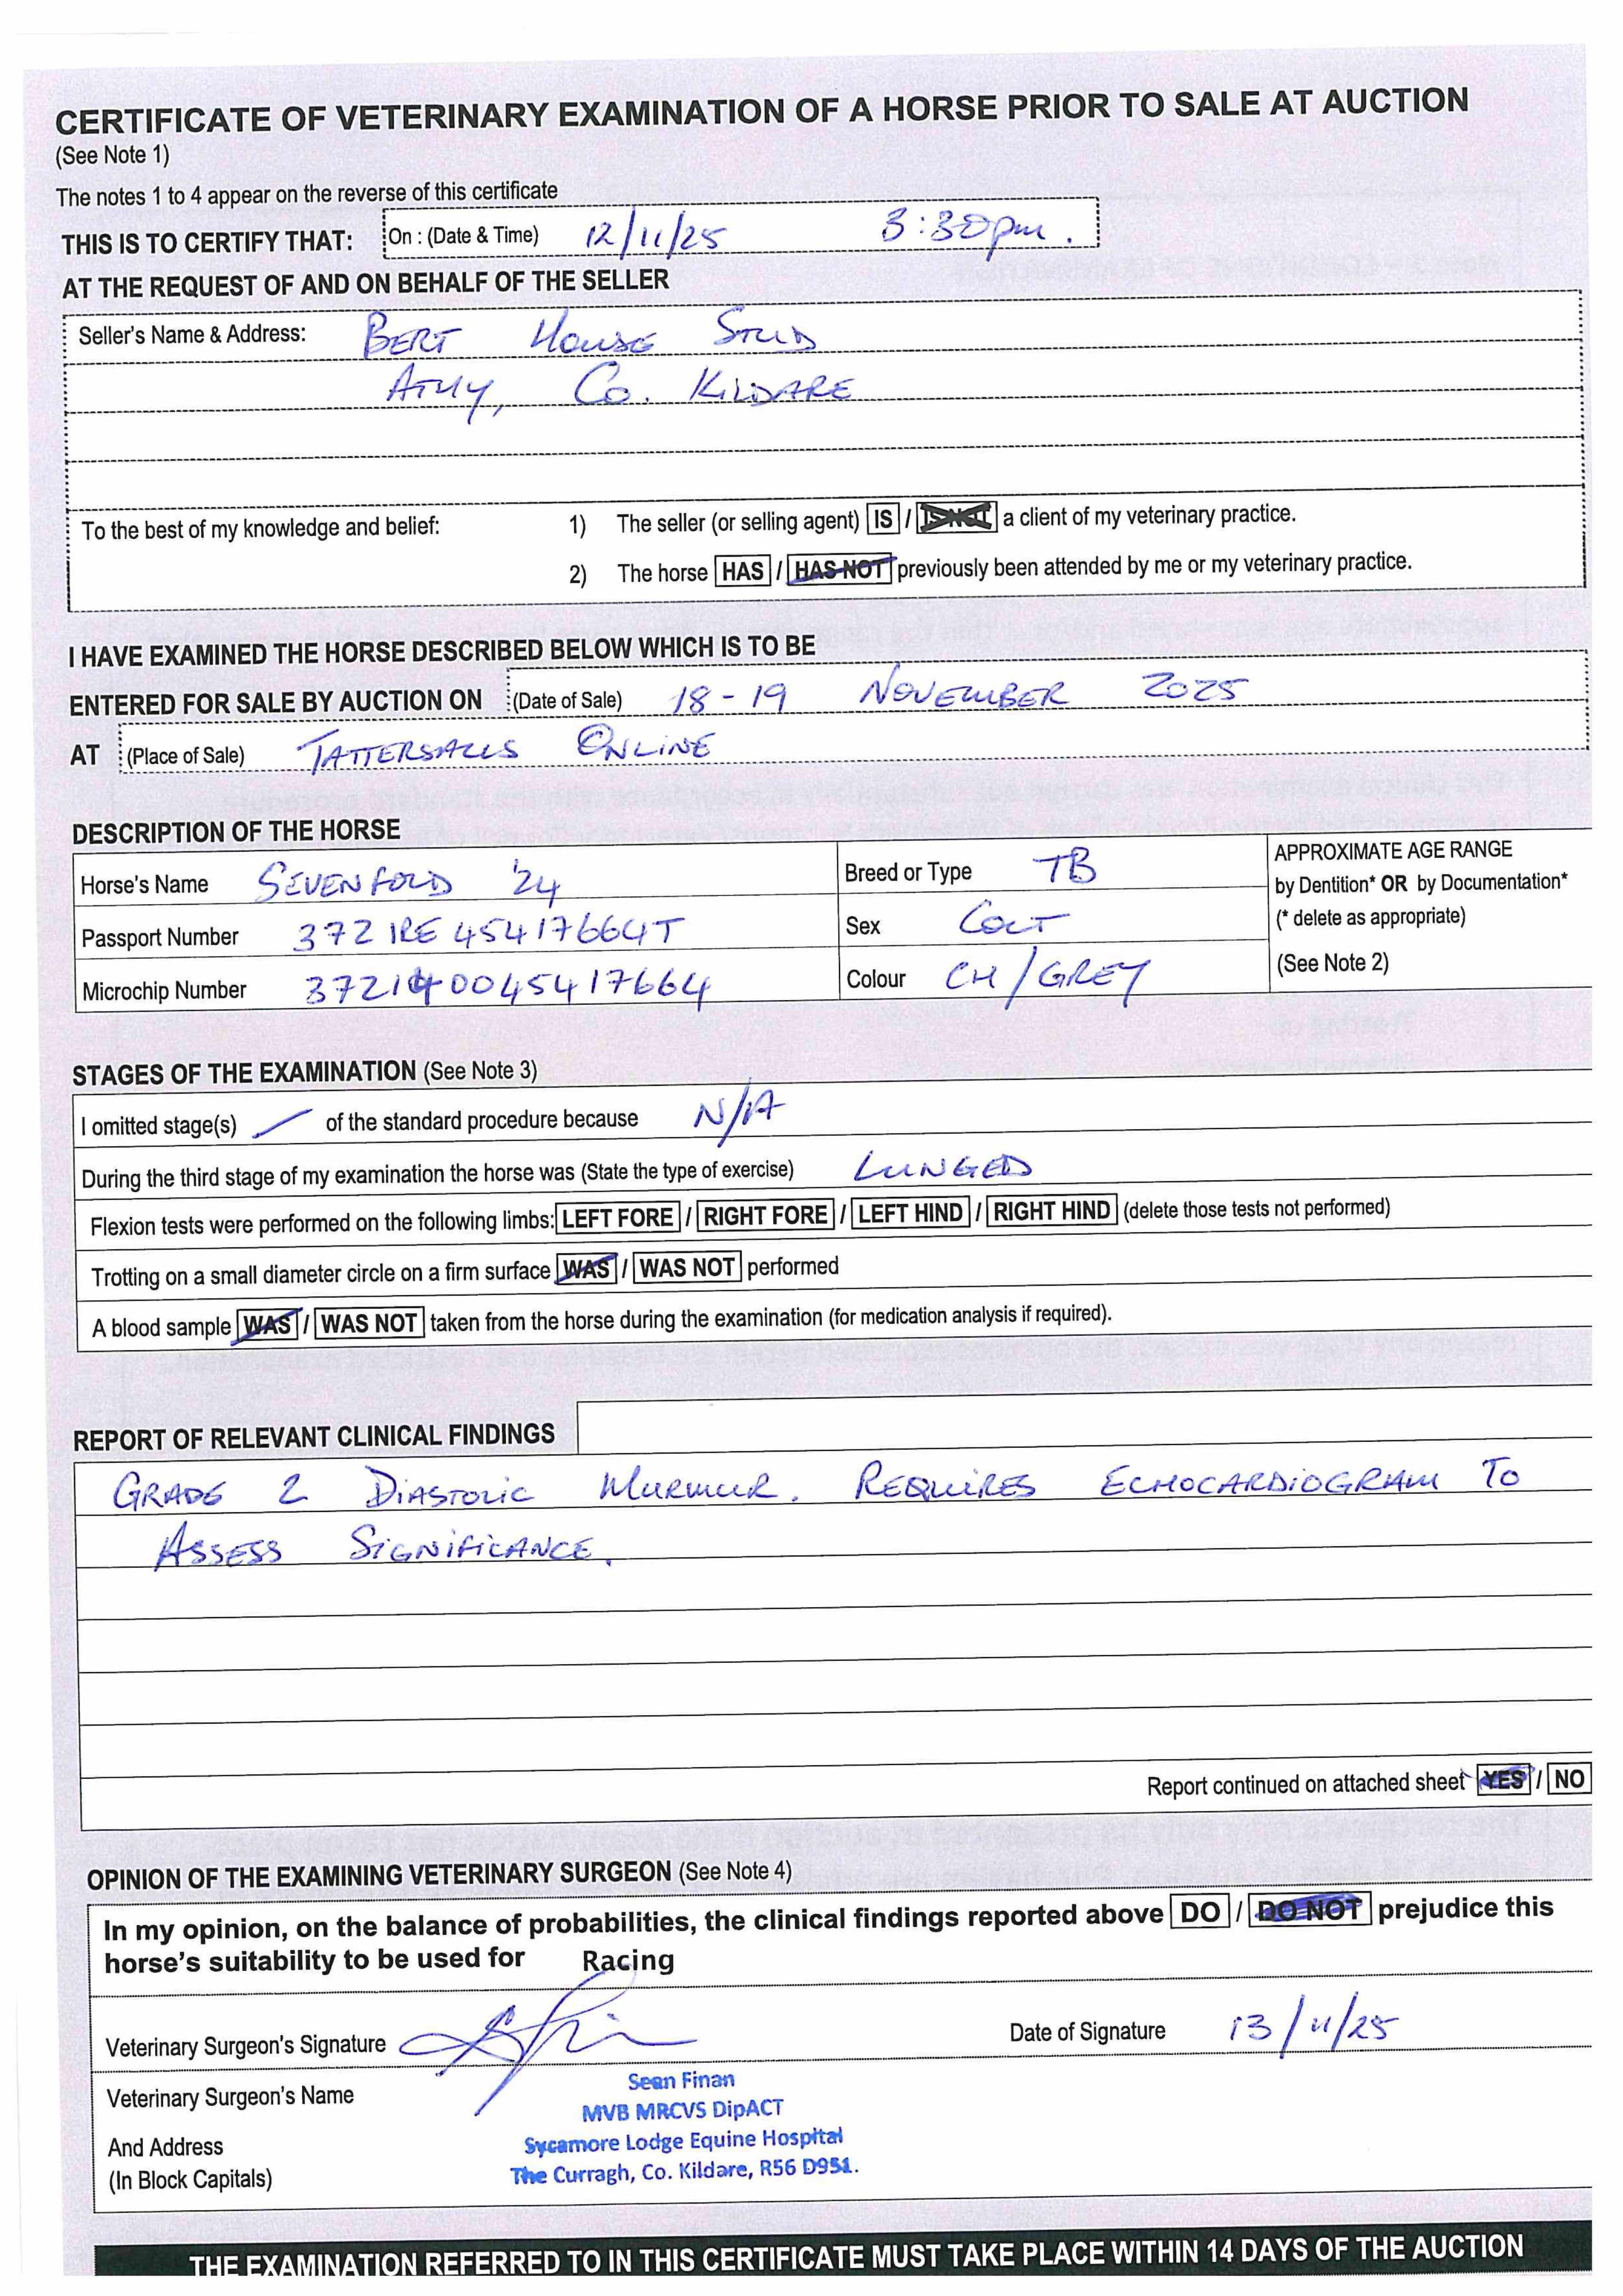 CERTIFICATE OF VETERINARY EXAMINATION OF A HORSE PRIOR TO SALE AT AUCTION
(See Note 1)
The notes 1 to 4 appear on the reverse of this certificate
THIS IS TO CERTIFY THAT: On : (Date & Time) 12/11/25 3:30pm.
AT THE REQUEST OF AND ON BEHALF OF THE SELLER
Seller's Name & Address: BERT HOUSE STUD
ATHY, CO. KILDARE
To the best of my knowledge and belief: 1) The seller (or selling agent) IS / IS NOT a client of my veterinary practice.
2) The horse HAS / HAS NOT previously been attended by me or my veterinary practice.
I HAVE EXAMINED THE HORSE DESCRIBED BELOW WHICH IS TO BE
ENTERED FOR SALE BY AUCTION ON (Date of Sale) 18-19 NOVEMBER 2025
AT (Place of Sale) TATTERSALLS ONLINE
DESCRIPTION OF THE HORSE
Horse's Name SEVENFOLD '24 Breed or Type TB APPROXIMATE AGE RANGE
by Dentition* OR by Documentation*
Passport Number 372 IRE 45417664T Sex COLT (* delete as appropriate)
Microchip Number 372140045417664 Colour CH/GREY (See Note 2)
STAGES OF THE EXAMINATION (See Note 3)
I omitted stage(s) / of the standard procedure because N/A
During the third stage of my examination the horse was (State the type of exercise) LUNGED
Flexion tests were performed on the following limbs: LEFT FORE / RIGHT FORE / LEFT HIND / RIGHT HIND (delete those tests not performed)
Trotting on a small diameter circle on a firm surface WAS / WAS NOT performed
A blood sample WAS / WAS NOT taken from the horse during the examination (for medication analysis if required).
REPORT OF RELEVANT CLINICAL FINDINGS
GRADE 2 DIASTOLIC MURMUR. REQUIRES ECHOCARDIOGRAM TO
ASSESS SIGNIFICANCE.
Report continued on attached sheet YES / NO
OPINION OF THE EXAMINING VETERINARY SURGEON (See Note 4)
In my opinion, on the balance of probabilities, the clinical findings reported above DO / DO NOT prejudice this
horse's suitability to be used for Racing
Veterinary Surgeon's Signature Date of Signature 13/11/25
Veterinary Surgeon's Name Sean Finan
MVB MRCVS DipACT
And Address Sycamore Lodge Equine Hospital
(In Block Capitals) The Curragh, Co. Kildare, R56 D951.
THE EXAMINATION REFERRED TO IN THIS CERTIFICATE MUST TAKE PLACE WITHIN 14 DAYS OF THE AUCTION